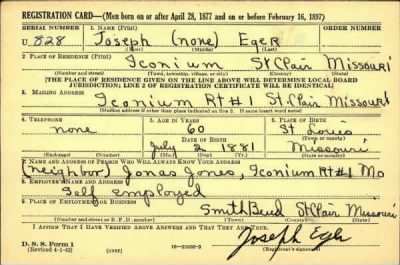 REGISTRATION CARD—(Men born on or after April 28, 1877 and on or before February 16, 1897)
SERIAL NUMBER 1. NAME (Print) ORDER NUMBER
U 828 Joseph (none) Eger
(First) (Middle) (Last)
2. PLACE OF RESIDENCE (Print)
Iconium St Clair Missouri
(Number and street) (Town, township, village, or city) (County) (State)
[THE PLACE OF RESIDENCE GIVEN ON THE LINE ABOVE WILL DETERMINE LOCAL BOARD
JURISDICTION; LINE 2 OF REGISTRATION CERTIFICATE WILL BE IDENTICAL]
3. MAILING ADDRESS
Iconium Rt #1 St. Clair Missouri
[Mailing address if other than place indicated on line 2. If same insert word same]
4. TELEPHONE 5. AGE IN YEARS 6. PLACE OF BIRTH
none 60 St Louis
DATE OF BIRTH (Town or county)
July 2 1881 Missouri
(Exchange) (Number) (Mo.) (Day) (Yr.) (State or country)
7. NAME AND ADDRESS OF PERSON WHO WILL ALWAYS KNOW YOUR ADDRESS
(neighbor) Jonas Jones, Iconium Rt #1 Mo
8. EMPLOYER'S NAME AND ADDRESS
Self employed
9. PLACE OF EMPLOYMENT OR BUSINESS
Smith Bend St Clair Missouri
(Number and street or R. F. D. number) (Town) (County) (State)
I AFFIRM THAT I HAVE VERIFIED ABOVE ANSWERS AND THAT THEY ARE TRUE.
D. S. S. Form 1
(Revised 4-1-42) (over) Joseph Eger
(Registrant's signature)